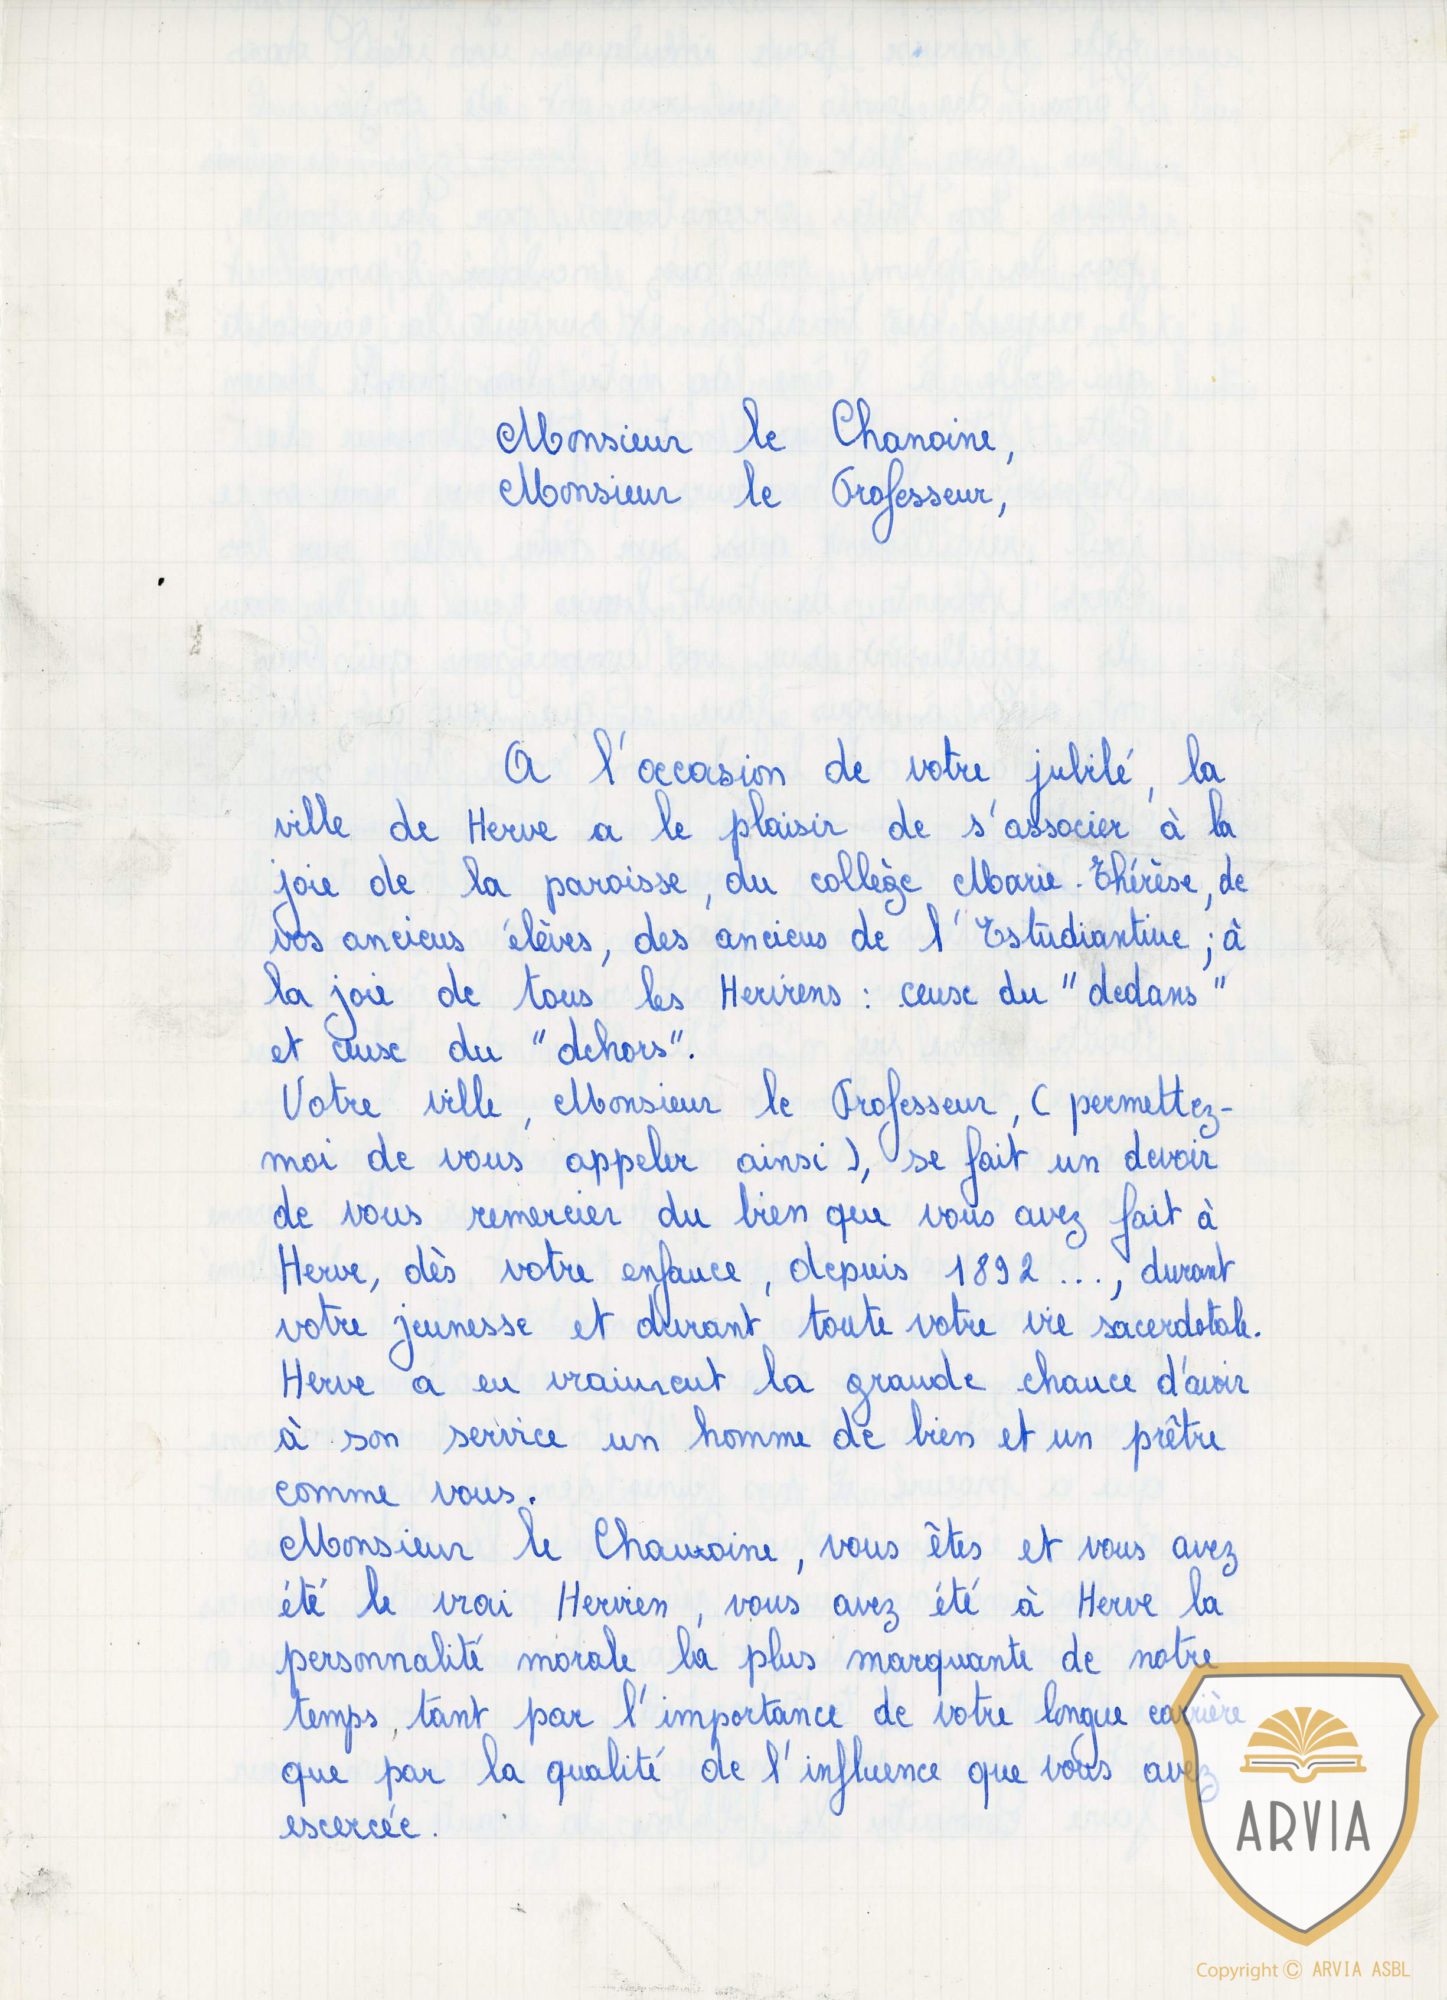 Monsieur le Chanoine,
Monsieur le Professeur,
A l'occasion de votre jubilé, la
ville de Herve a le plaisir de s'associer à la
joie de la paroisse, du collège Marie-Thérèse, de
vos anciens élèves, des anciens de l'Estudiantine ; à
la joie de tous les Herviens : ceux du "dedans"
et ceux du "dehors".
Votre ville, Monsieur le Professeur, ( permettez-
moi de vous appeler ainsi ), se fait un devoir
de vous remercier du bien que vous avez fait à
Herve, dès votre enfance, depuis 1892 ..., durant
votre jeunesse et durant toute votre vie sacerdotale.
Herve a eu vraiment la grande chance d'avoir
à son service un homme de bien et un prêtre
comme vous.
Monsieur le Chanoine, vous êtes et vous avez
été le vrai Hervien, vous avez été à Herve la
personnalité morale la plus marquante de notre
temps, tant par l'importance de votre longue carrière
que par la qualité de l'influence que vous avez
exercée.
ARVIA
Copyright © ARVIA ASBL